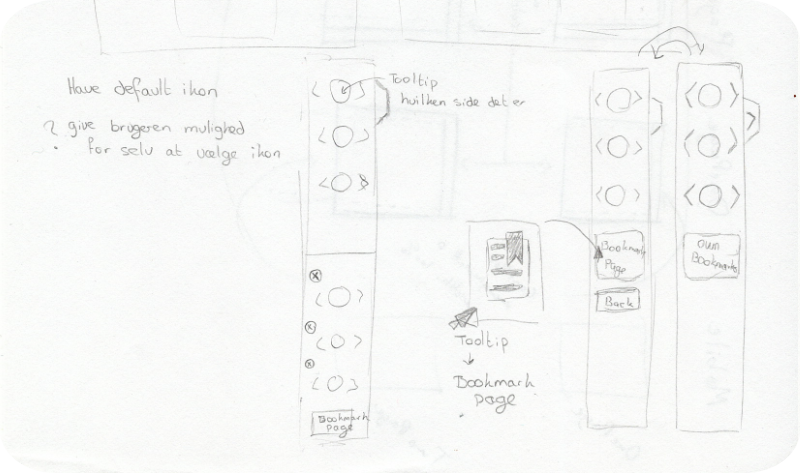 Have default ikon
? give brugeren mulighed
for selv at vælge ikon
Tooltip
hvilken side det er
Bookmark
page
Tooltip
Bookmark
page
Bookmark
Page
Back
Own
Bookmarks